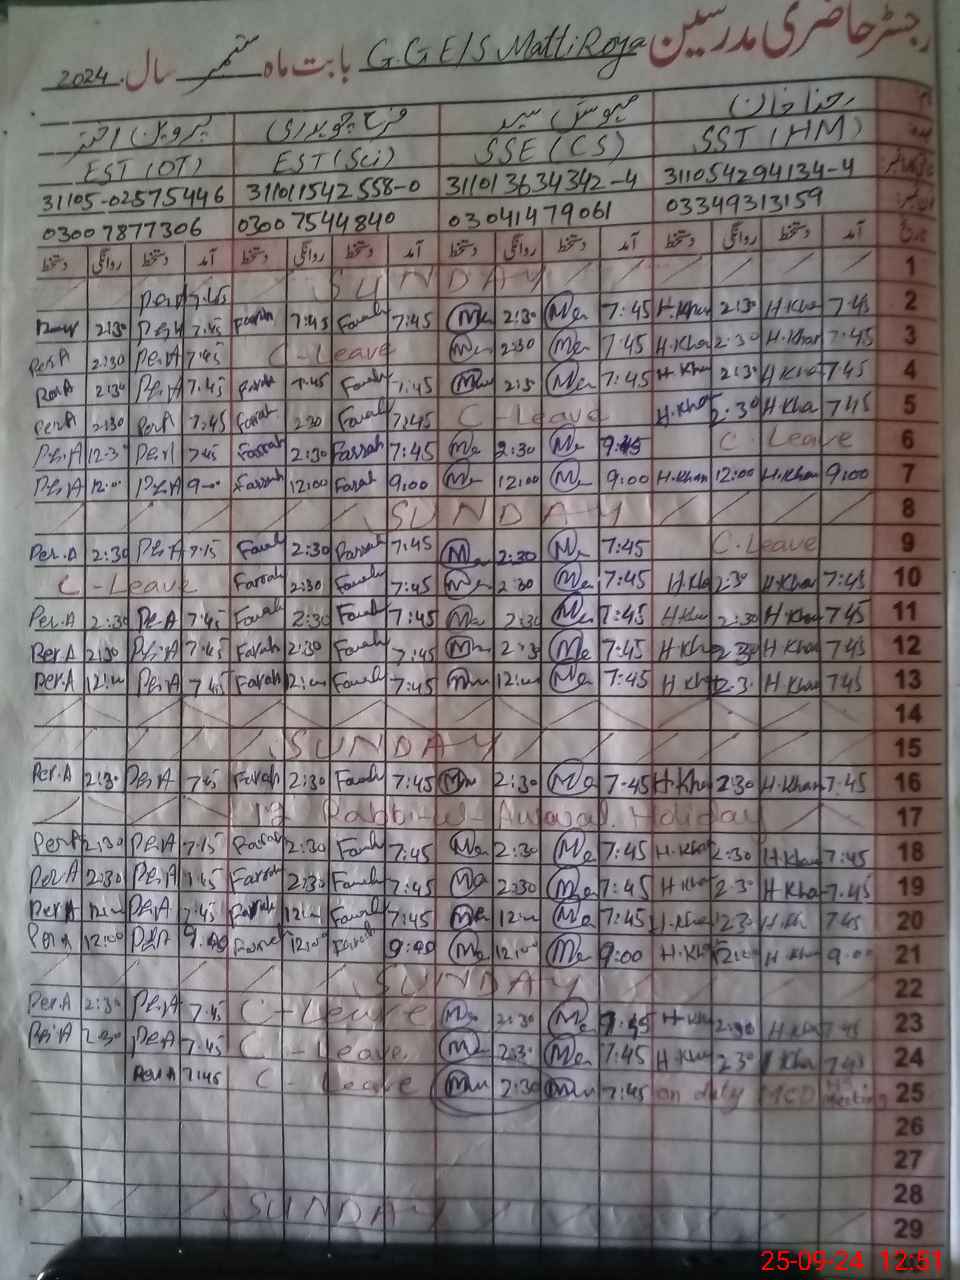 رجسٹر حاضری مدرسین G.GE/S Matti Roya بابت ماہ ستمبر سال 2024
رضا خان
فرح چوہدری
پروین اختر
SST (HM) SSE (CS) EST (Sci) EST (OT)
311054294134-4 311013634342-4 311011542558-0 31105-02575446
03349313159 03041479061 03007544840 03007877306
آمد دستخط روانگی دستخط آمد دستخط روانگی دستخط آمد دستخط روانگی دستخط آمد دستخط روانگی دستخط
1 SUNDAY
2 7:45 H.Kha 2:30 H.Kha 7:45 2:30 7:45 Farah 7:45 Farah 7:45 Per.A 2:30
3 7:45 H.Khan 2:30 H.Kha 7:45 2:30 C-Leave 7:45 Per.A 2:30 Per.A
4 7:45 H.Kha 2:30 H.Kha 7:45 2:30 7:45 Farah 7:45 Farah 7:45 Per.A 2:30 Per.A
5 7:45 H.Kha 2:30 H.Kha C-Leave 7:45 Farah 2:30 Farah 7:45 Per.A 2:30 Per.A
6 C.Leave 2:30 7:45 Farrah 2:30 Farrah 7:45 Per.A 12:30 Per.A
7 9:00 H.Khan 12:00 H.Khan 9:00 12:00 9:00 Farah 12:00 Farrah 9:00 Per.A 12:00 Per.A
8 SUNDAY
9 C.Leave 7:45 2:30 7:45 Farrah 2:30 Farah Per.A 2:30 Per.A
10 7:45 H.Khan 2:30 H.Kha 7:45 2:30 7:45 Farah 2:30 Farrah C-Leave
11 7:45 H.Khan 2:30 H.Kha 7:45 2:30 7:45 Farah 2:30 Farah 7:45 Per.A 2:30 Per.A
12 7:45 H.Khan 2:30 H.Kha 7:45 2:30 7:45 Farah 2:30 Farah 7:45 Per.A 2:30 Per.A
13 7:45 H.Khan 12:30 H.Kha 7:45 12:00 7:45 Farah 12:00 Farah 7:45 Per.A 12:00 Per.A
14
15 SUNDAY
16 7:45 H.Khan 2:30 H.Kha 7:45 2:30 7:45 Farah 2:30 Farah 7:45 Per.A 2:30 Per.A
17 12 Rabbi-ul-Awwal Holiday
18 7:45 H.Kha 2:30 H.Kha 7:45 2:30 7:45 Farah 2:30 Farah Per.A 2:30 Per.A
19 7:45 H.Kha 2:30 H.Kha 7:45 2:30 7:45 Farah 2:30 Farrah 7:45 Per.A 2:30 Per.A
20 7:45 12:30 H.Kha 7:45 12:00 7:45 Farah 12:00 Farah 7:45 Per.A 12:00 Per.A
21 9:00 H.Kha 12:00 H.Kha 9:00 12:00 9:00 Farah 12:00 Farah 9:00 Per.A 12:00 Per.A
22 SUNDAY
23 7:45 H.Kha 2:30 H.Kha 2:30 C-Leave 7:45 Per.A 2:30 Per.A
24 7:45 Kha 2:30 H.Kha 7:45 2:30 C-Leave 7:45 Per.A 2:30 Per.A
25 on duty MCD meeting 7:45 2:30 C-Leave 7:45 Per.A
26
27
28
SUNDAY
29
25-09-24 12:51